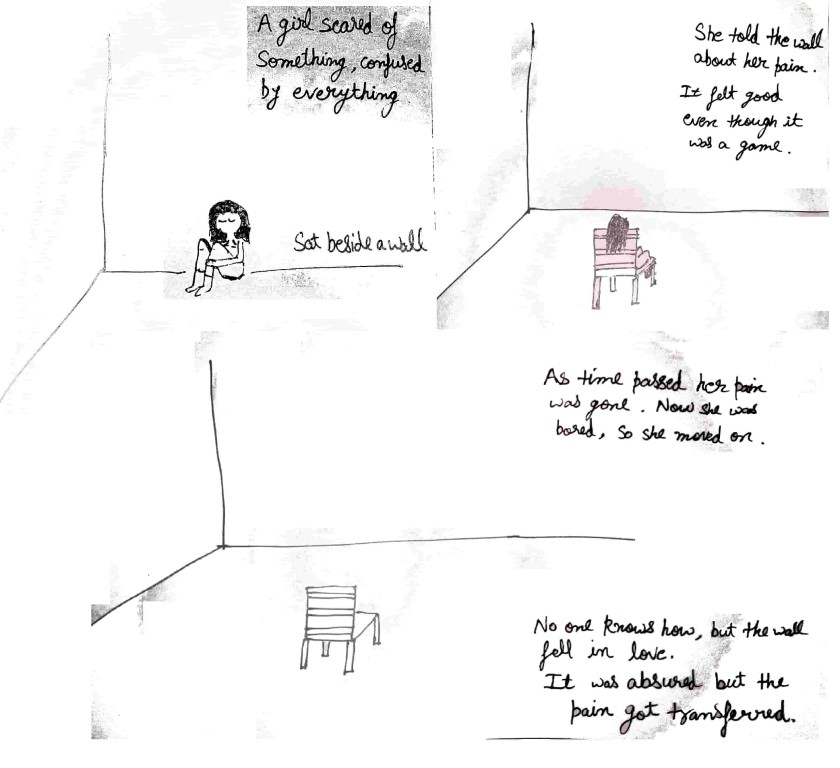 A girl scared of
Something, confused
by everything
Sat beside a wall
She told the wall
about her pain.
It felt good
even though it
was a game.
As time passed her pain
was gone. Now she was
bored, So she moved on.
No one knows how, but the wall
fell in love.
It was absured but the
pain got transferred.